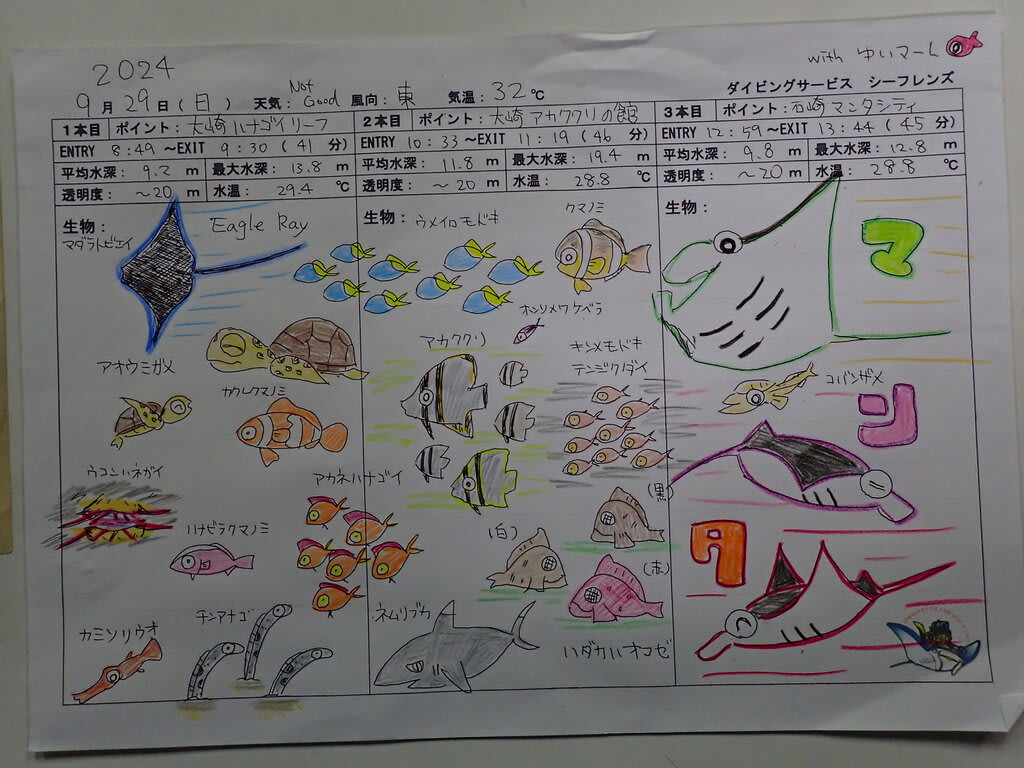 2024
with ゆいマール
9月29日(日) 天気: Not Good 風向: 東 気温: 32℃
ダイビングサービス シーフレンズ
1本目 ポイント: 大崎ハナゴイリーフ
ENTRY 8:49 ~EXIT 9:30 (41 分)
平均水深: 9.2 m 最大水深: 13.8 m
透明度: ~20 m 水温: 29.4 ℃
生物:
マダラトビエイ
Eagle Ray
アオウミガメ
カクレクマノミ
ウコンハネガイ
アカネハナゴイ
ハナビラクマノミ
チンアナゴ
カミソリウオ
2本目 ポイント: 大崎アカククリの館
ENTRY 10:33 ~EXIT 11:19 (46 分)
平均水深: 11.8 m 最大水深: 19.4 m
透明度: ~20 m 水温: 28.8 ℃
生物:
ウメイロモドキ
クマノミ
オンリメワケベラ
アカククリ
キンメモドキ
テンジクダイ
(黒)
(白)
(赤)
ネムリブカ
ハダカハオコゼ
3本目 ポイント: 石崎マンタシティ
ENTRY 12:59 ~EXIT 13:44 (45 分)
平均水深: 9.8 m 最大水深: 12.8 m
透明度: ~20 m 水温: 28.8 ℃
生物:
マ
コバンザメ
ン
タ